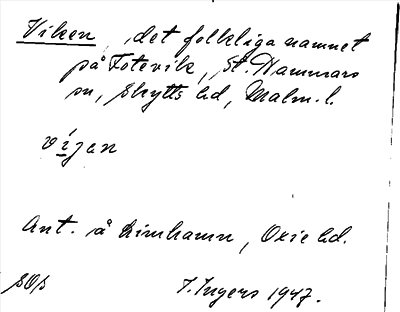 Viken, det folkliga namnet
på Fotevik, St. Hammars
sn, Skytts hd, Malm. l.
vijan
Ant. å Limhamn, Oxie hd.
SOs I. Ingers 1947.